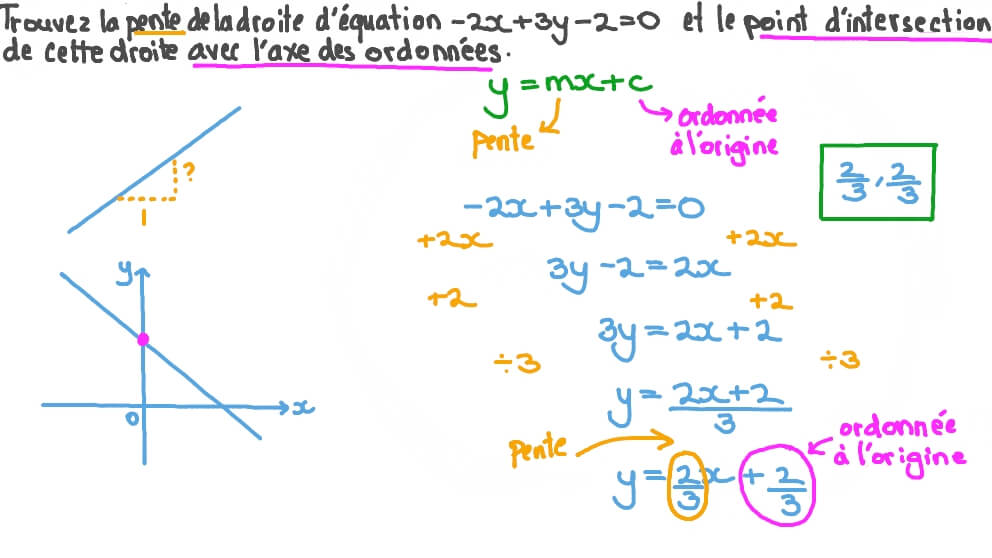 Trouvez la pente de la droite d'équation -2x+3y-2=0 et le point d'intersection
de cette droite avec l'axe des ordonnées.
y=mx+c
pente
ordonnée
à l'origine
2/3, 2/3
?
1
-2x+3y-2=0
+2x +2x
3y-2=2x
+2 +2
3y=2x+2
÷3 ÷3
y=(2x+2)/3
y
x
0
pente
ordonnée
à l'origine
y=2/3x+2/3